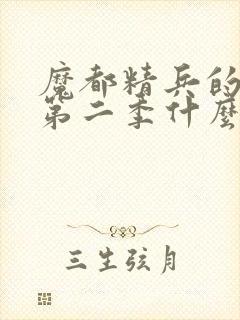 魔都精兵的
第二季什麼
三生弦月